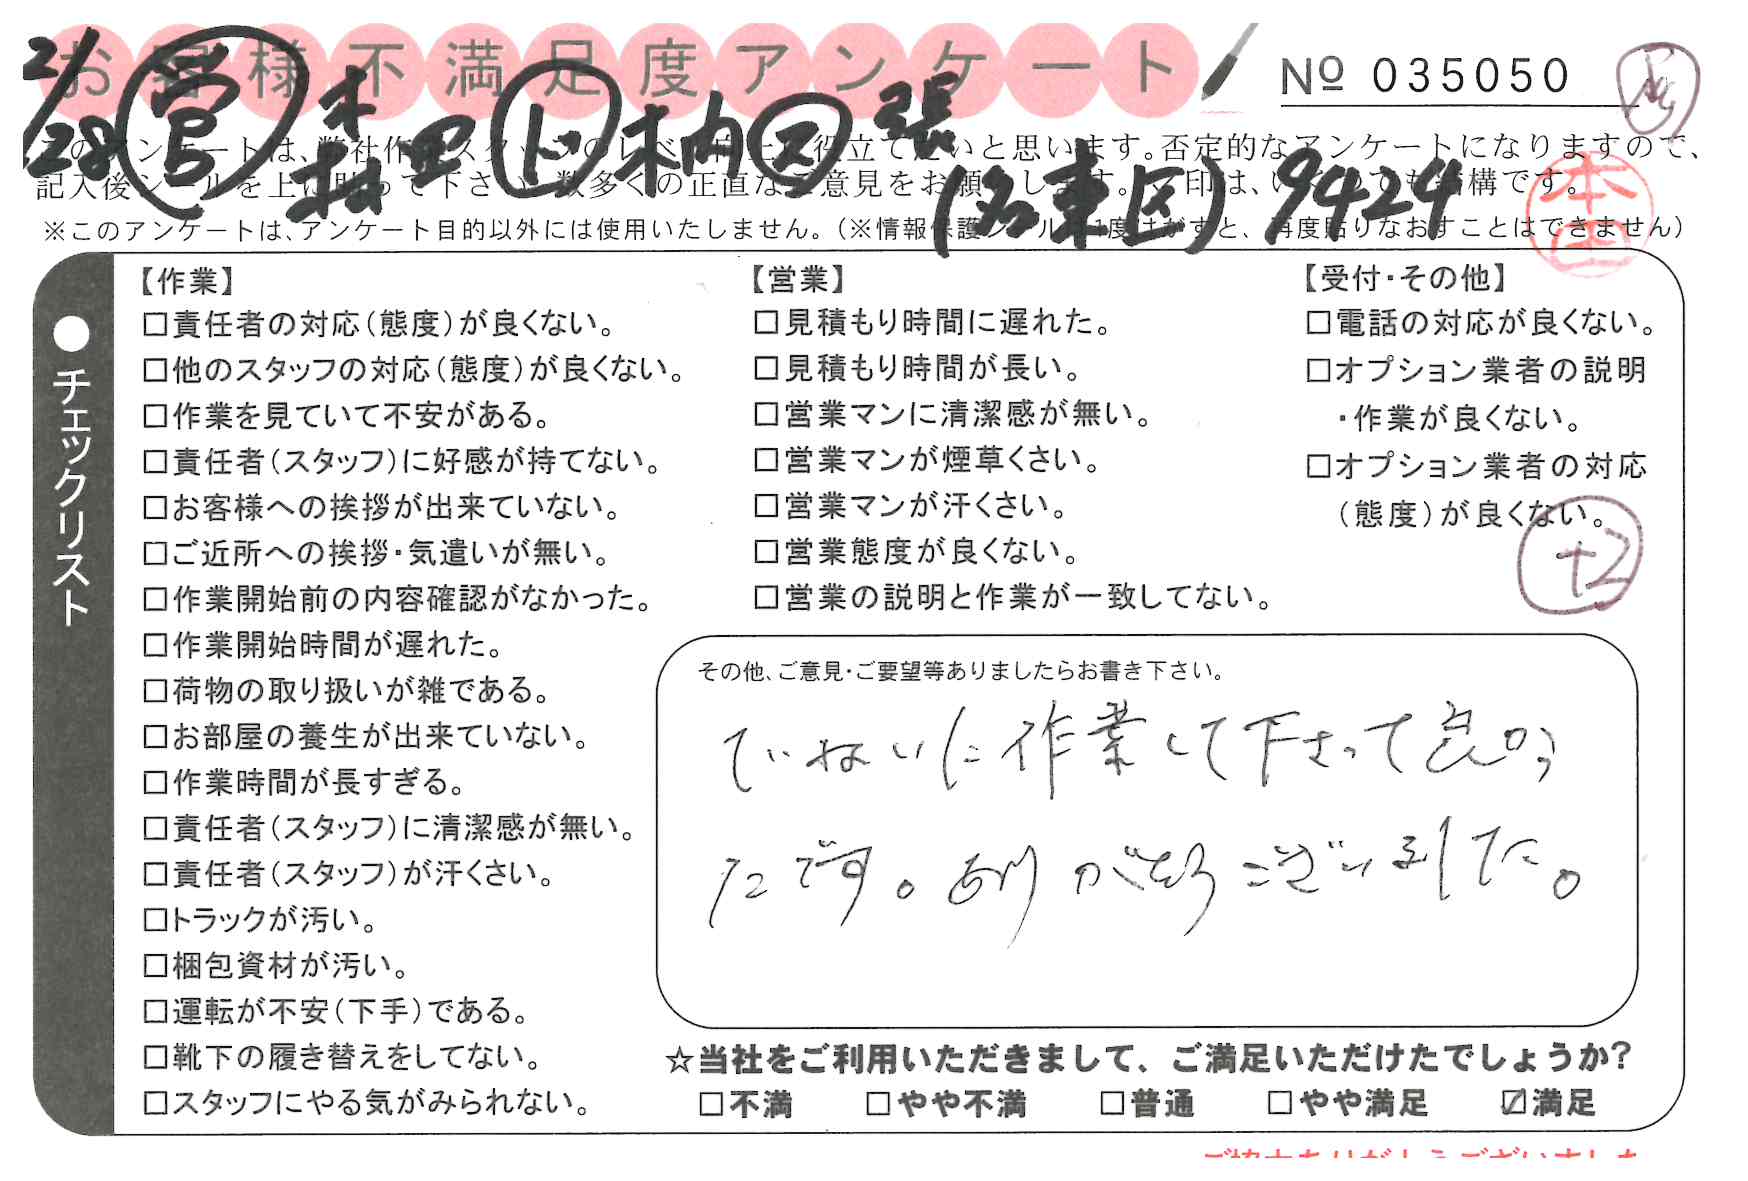 お客様不満足度アンケート
Nº 035050
2/28 営 本田 ト 木内 ス 張
(名東区) 9424
本田
このアンケートは、弊社作業スタッフのレベル向上に役立てたいと思います。否定的なアンケートになりますので、
記入後シールを上に貼って下さい。数多くの正直なご意見をお願いします。✓印は、いくつでも結構です。
※このアンケートは、アンケート目的以外には使用いたしません。(※情報保護シールは1度はがすと、再度貼りなおすことはできません)
●チェックリスト
【作業】
□責任者の対応(態度)が良くない。
□他のスタッフの対応(態度)が良くない。
□作業を見ていて不安がある。
□責任者(スタッフ)に好感が持てない。
□お客様への挨拶が出来ていない。
□ご近所への挨拶・気遣いが無い。
□作業開始前の内容確認がなかった。
□作業開始時間が遅れた。
□荷物の取り扱いが雑である。
□お部屋の養生が出来ていない。
□作業時間が長すぎる。
□責任者(スタッフ)に清潔感が無い。
□責任者(スタッフ)が汗くさい。
□トラックが汚い。
□梱包資材が汚い。
□運転が不安(下手)である。
□靴下の履き替えをしてない。
□スタッフにやる気がみられない。
【営業】
□見積もり時間に遅れた。
□見積もり時間が長い。
□営業マンに清潔感が無い。
□営業マンが煙草くさい。
□営業マンが汗くさい。
□営業態度が良くない。
□営業の説明と作業が一致してない。
【受付・その他】
□電話の対応が良くない。
□オプション業者の説明
・作業が良くない。
□オプション業者の対応
(態度)が良くない。
+2
その他、ご意見・ご要望等ありましたらお書き下さい。
ていねいに作業して下さって良かっ
たです。ありがとうございました。
☆当社をご利用いただきまして、ご満足いただけたでしょうか?
□不満 □やや不満 □普通 □やや満足 ☑満足
ご協力ありがとうございました